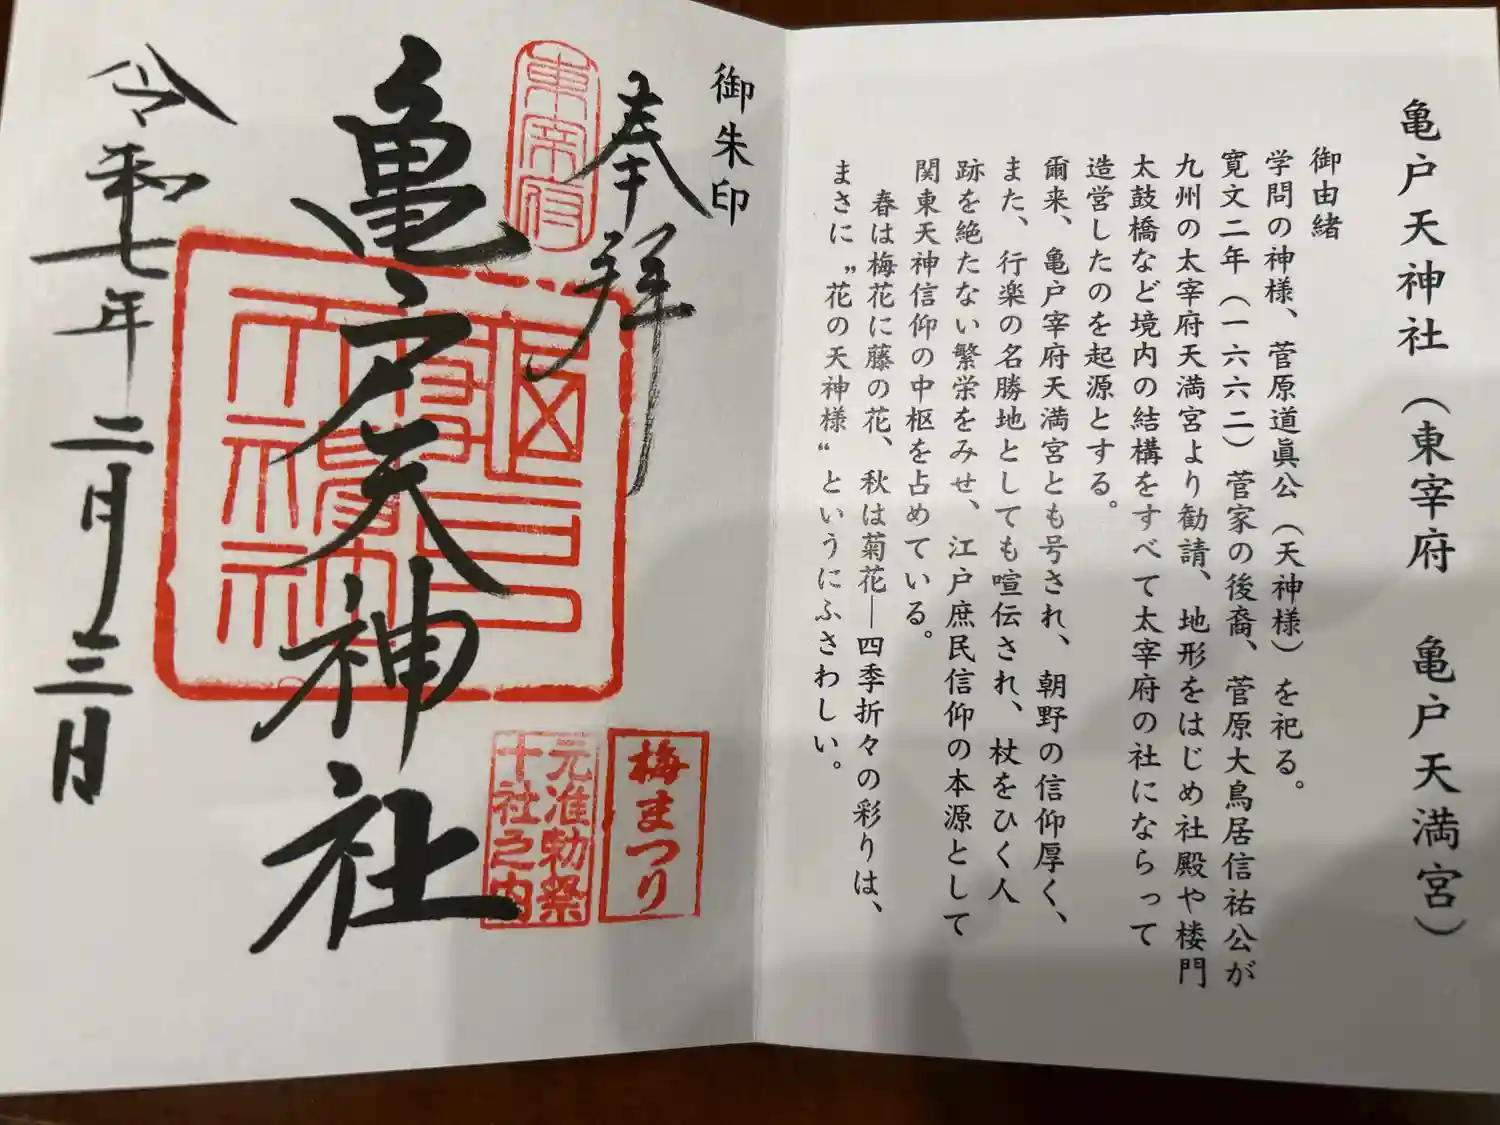 亀戸天神社（東宰府　亀戸天満宮）
御由緒
学問の神様、菅原道眞公（天神様）を祀る。
寛文二年（一六六二）菅家の後裔、菅原大鳥居信祐公が
九州の太宰府天満宮より勧請、地形をはじめ社殿や楼門
太鼓橋など境内の結構をすべて太宰府の社にならって
造営したのを起源とする。
爾来、亀戸宰府天満宮とも号され、朝野の信仰厚く、
また、行楽の名勝地としても喧伝され、杖をひく人
跡を絶たない繁栄をみせ、江戸庶民信仰の本源として
関東天神信仰の中枢を占めている。
春は梅花に藤の花、秋は菊花―四季折々の彩りは、
まさに〝花の天神様〟というにふさわしい。
御朱印
奉拝
東宰府
亀戸天神社
梅まつり
元准勅祭
十社之内
令和七年二月三日